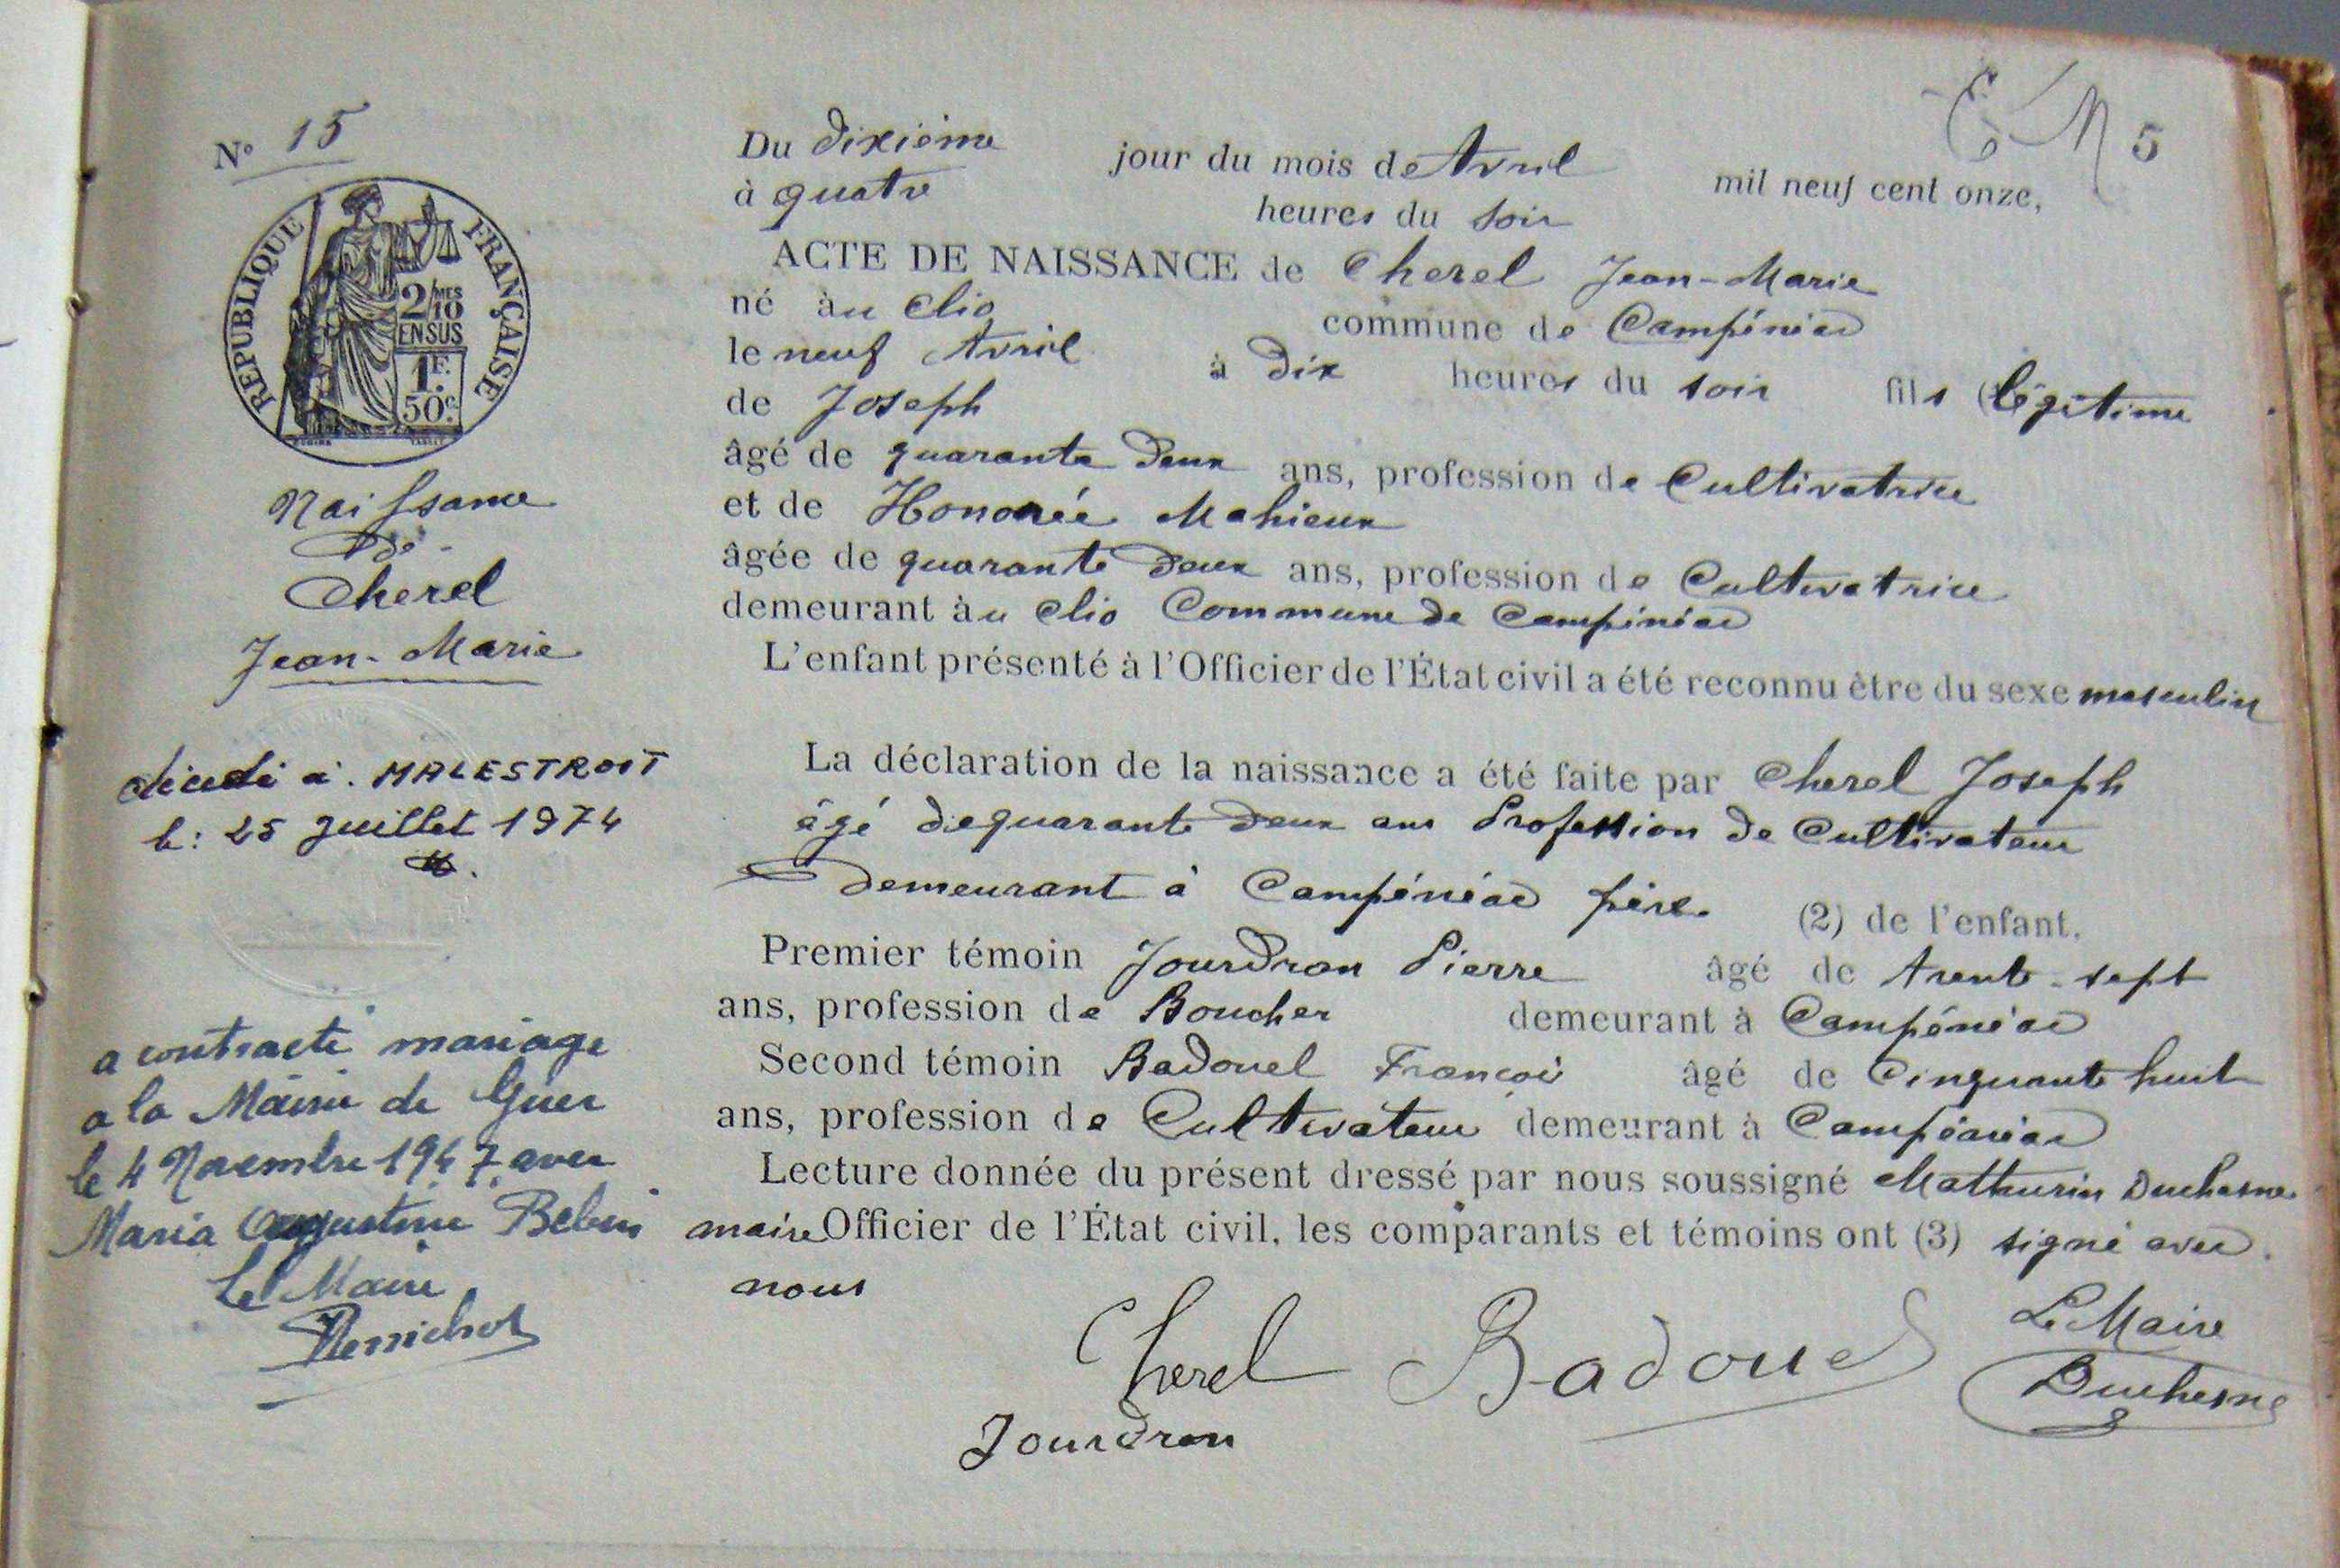 E M 5
N° 15
RÉPUBLIQUE FRANÇAISE
2/10 MES
EN SUS
1F.
50c.
Naissance
de
Cherel
Jean-Marie
décédé à MALESTROIT
le: 25 juillet 1974
a contracté mariage
a la Mairie de Guer
le 4 Novembre 1947 avec
Maria Augustine
Le Maire
Du dixième jour du mois de Avril mil neuf cent onze,
à quatre heures du soir
ACTE DE NAISSANCE de Cherel Jean-Marie
né àu Clio commune de Campénéac
le neuf Avril à dix heures du soir fils (légitime
de Joseph
âgé de quarante deux ans, profession de Cultivatrice
et de Honorée Mahieux
âgée de quarante deux ans, profession de Cultivatrice
demeurant àu Clio Commune de Campénéac
L'enfant présenté à l'Officier de l'État civil a été reconnu être du sexe masculin
La déclaration de la naissance a été faite par Cherel Joseph
âgé de quarante deux ans Profession de Cultivateur
demeurant à Campénéac père. (2) de l'enfant.
Premier témoin Jourdran Pierre âgé de trente-sept
ans, profession de Boucher demeurant à Campénéac
Second témoin Badouel François âgé de Cinquante huit
ans, profession de Cultivateur demeurant à Campénéac
Lecture donnée du présent dressé par nous soussigné Mathurin Duchesne
maire Officier de l'État civil, les comparants et témoins ont (3) signé avec
nous
Cherel Badouel Le Maire
Jourdran Duchesne